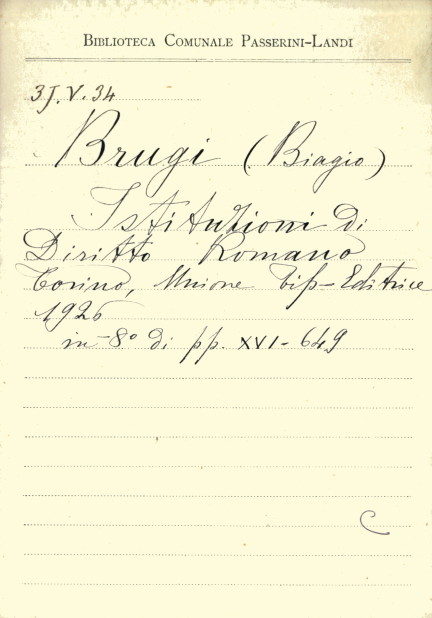 BIBLIOTECA COMUNALE PASSERINI-LANDI
3J.V.34
Brugi (Biagio)
Istituzioni di
Diritto Romano
Torino, Unione Tip-Editrice
1926
in-8° di pp. XVI-649
C